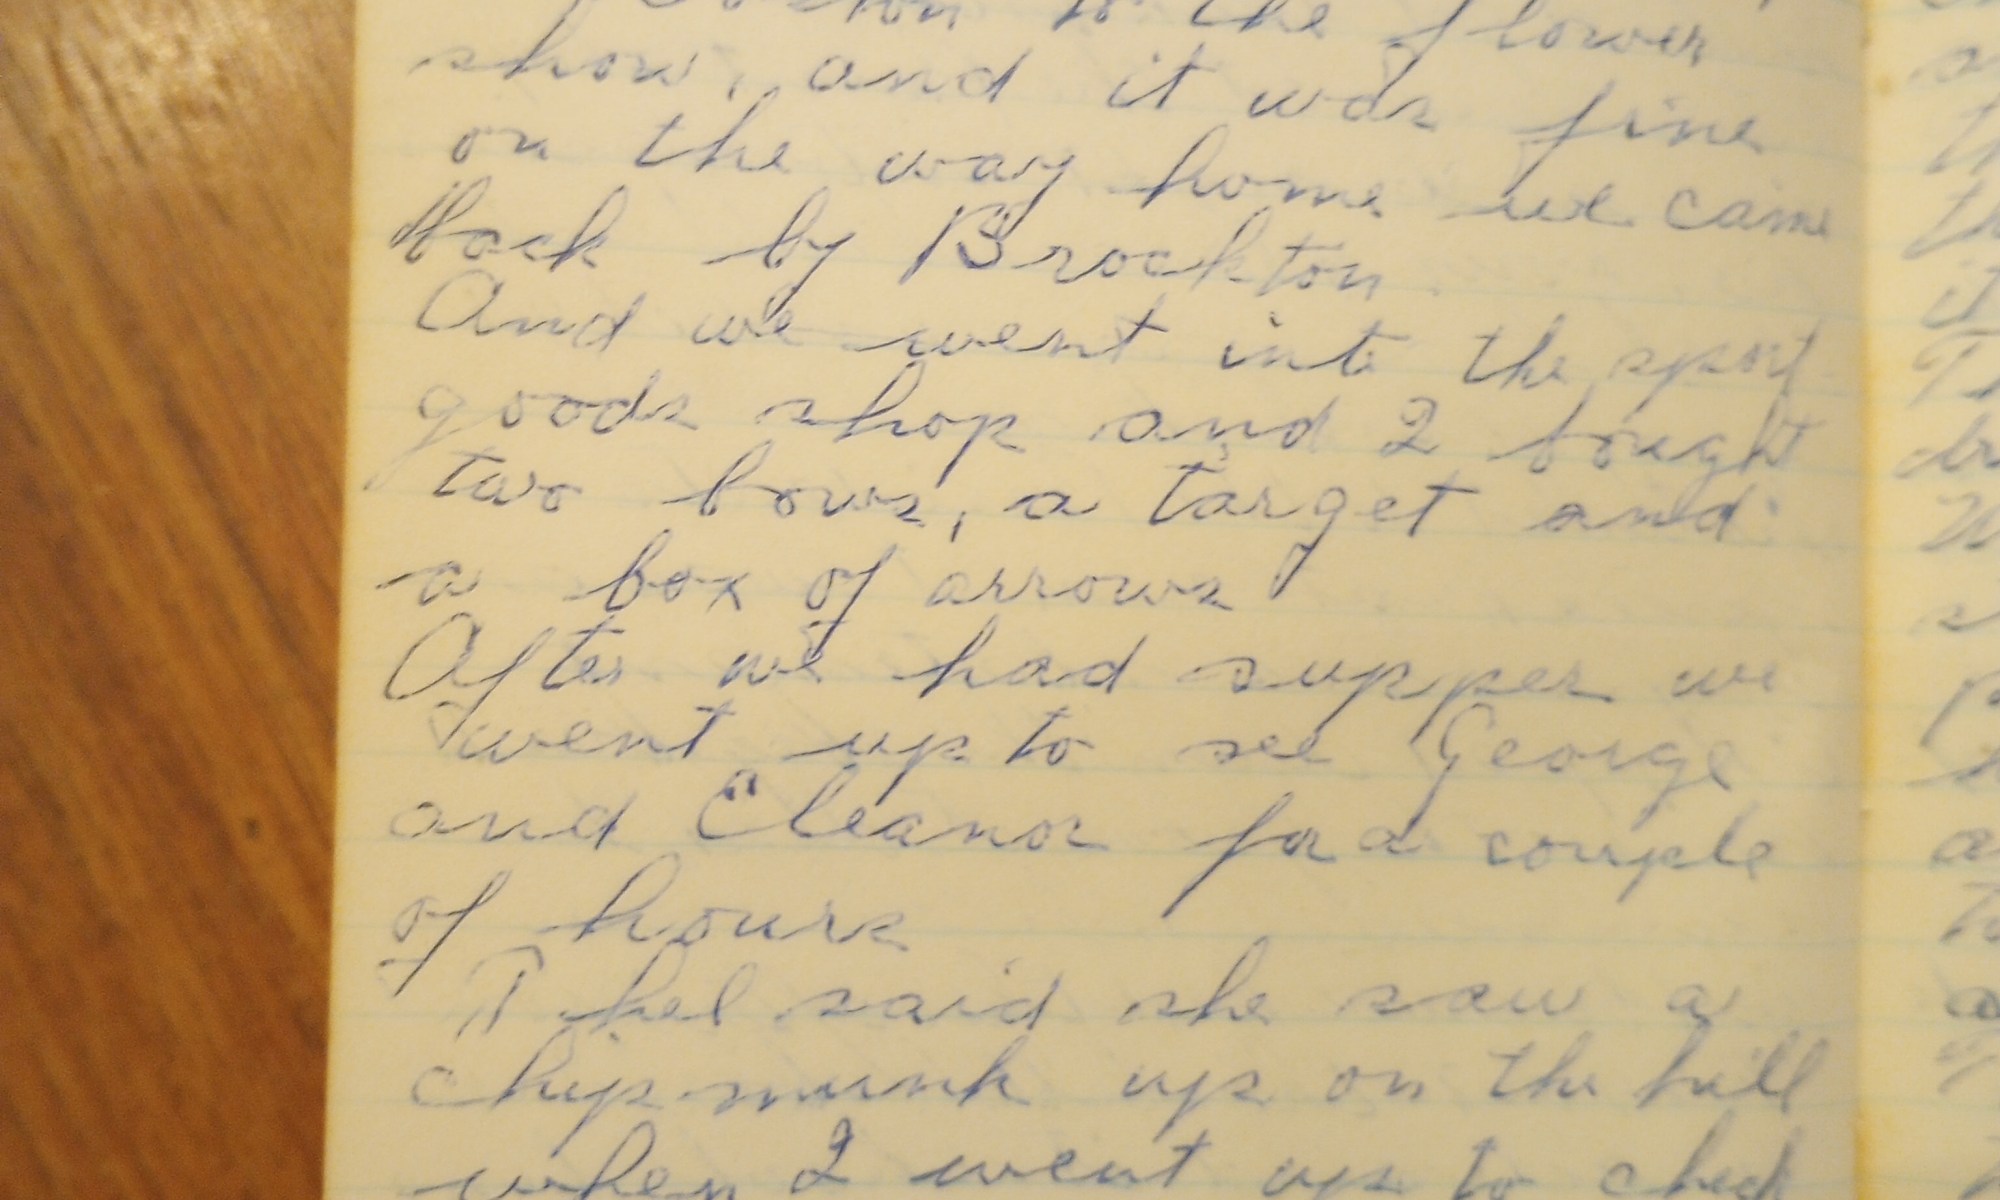 to the flower
show, and it was fine
on the way home we came
back by Brockton.
And we went into the sport
goods shop and I bought
two bows, a target and
a box of arrows
After we had supper we
went up to see George
and Eleanor for a couple
of hours
said she saw a
chipmunk up on the hill
when I went up to check